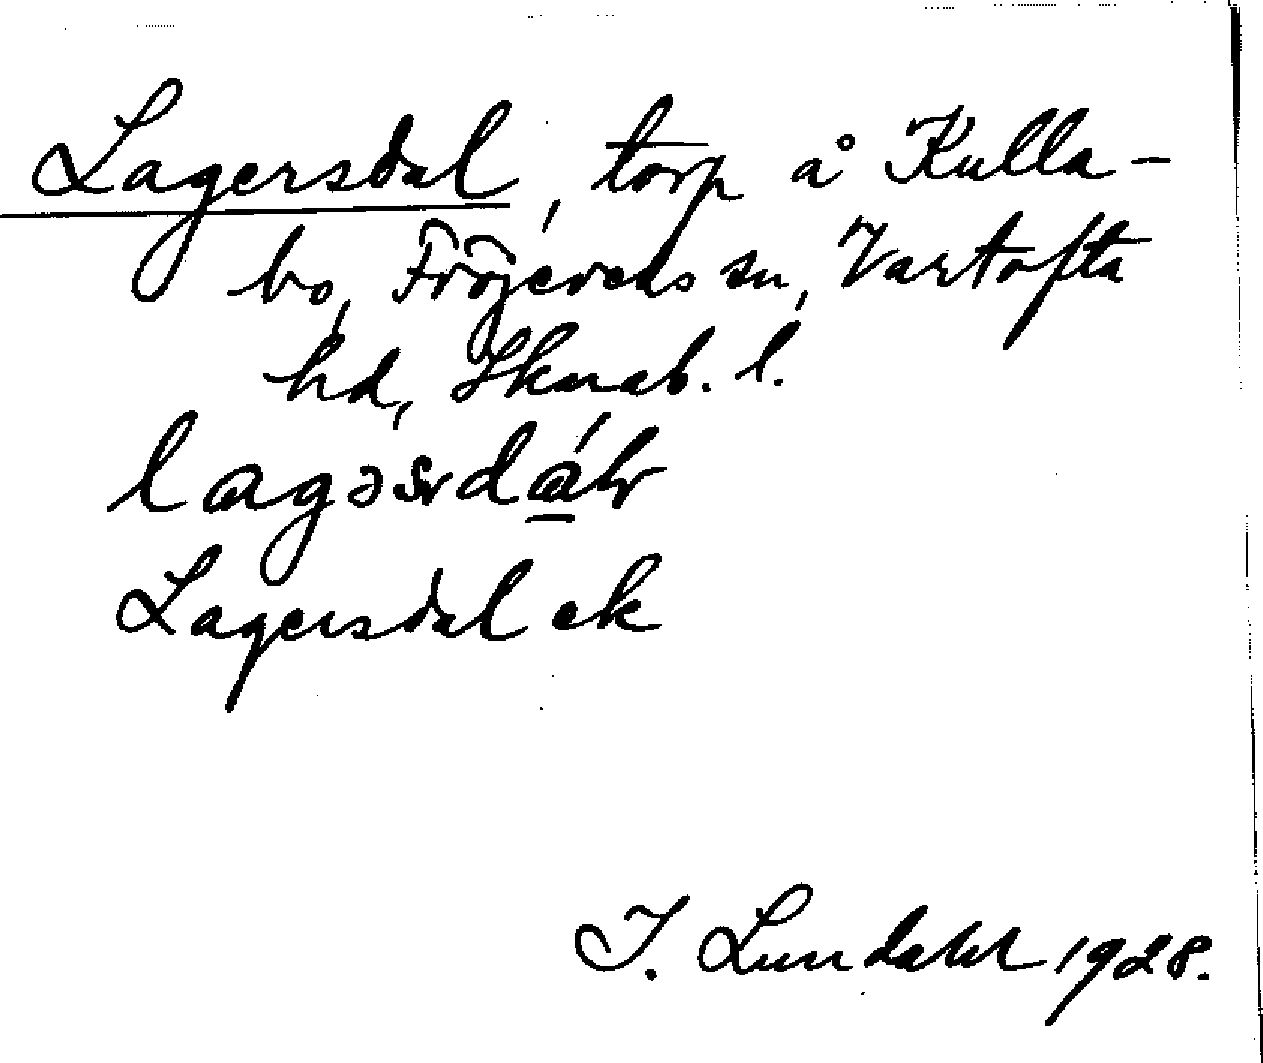 Lagersdal, torp å Kulla-
bo, Fröjereds sn, Vartofta
hd, Skarab. l.
lagəsrdálr
Lagersdal ek
I. Lundahl 1928.